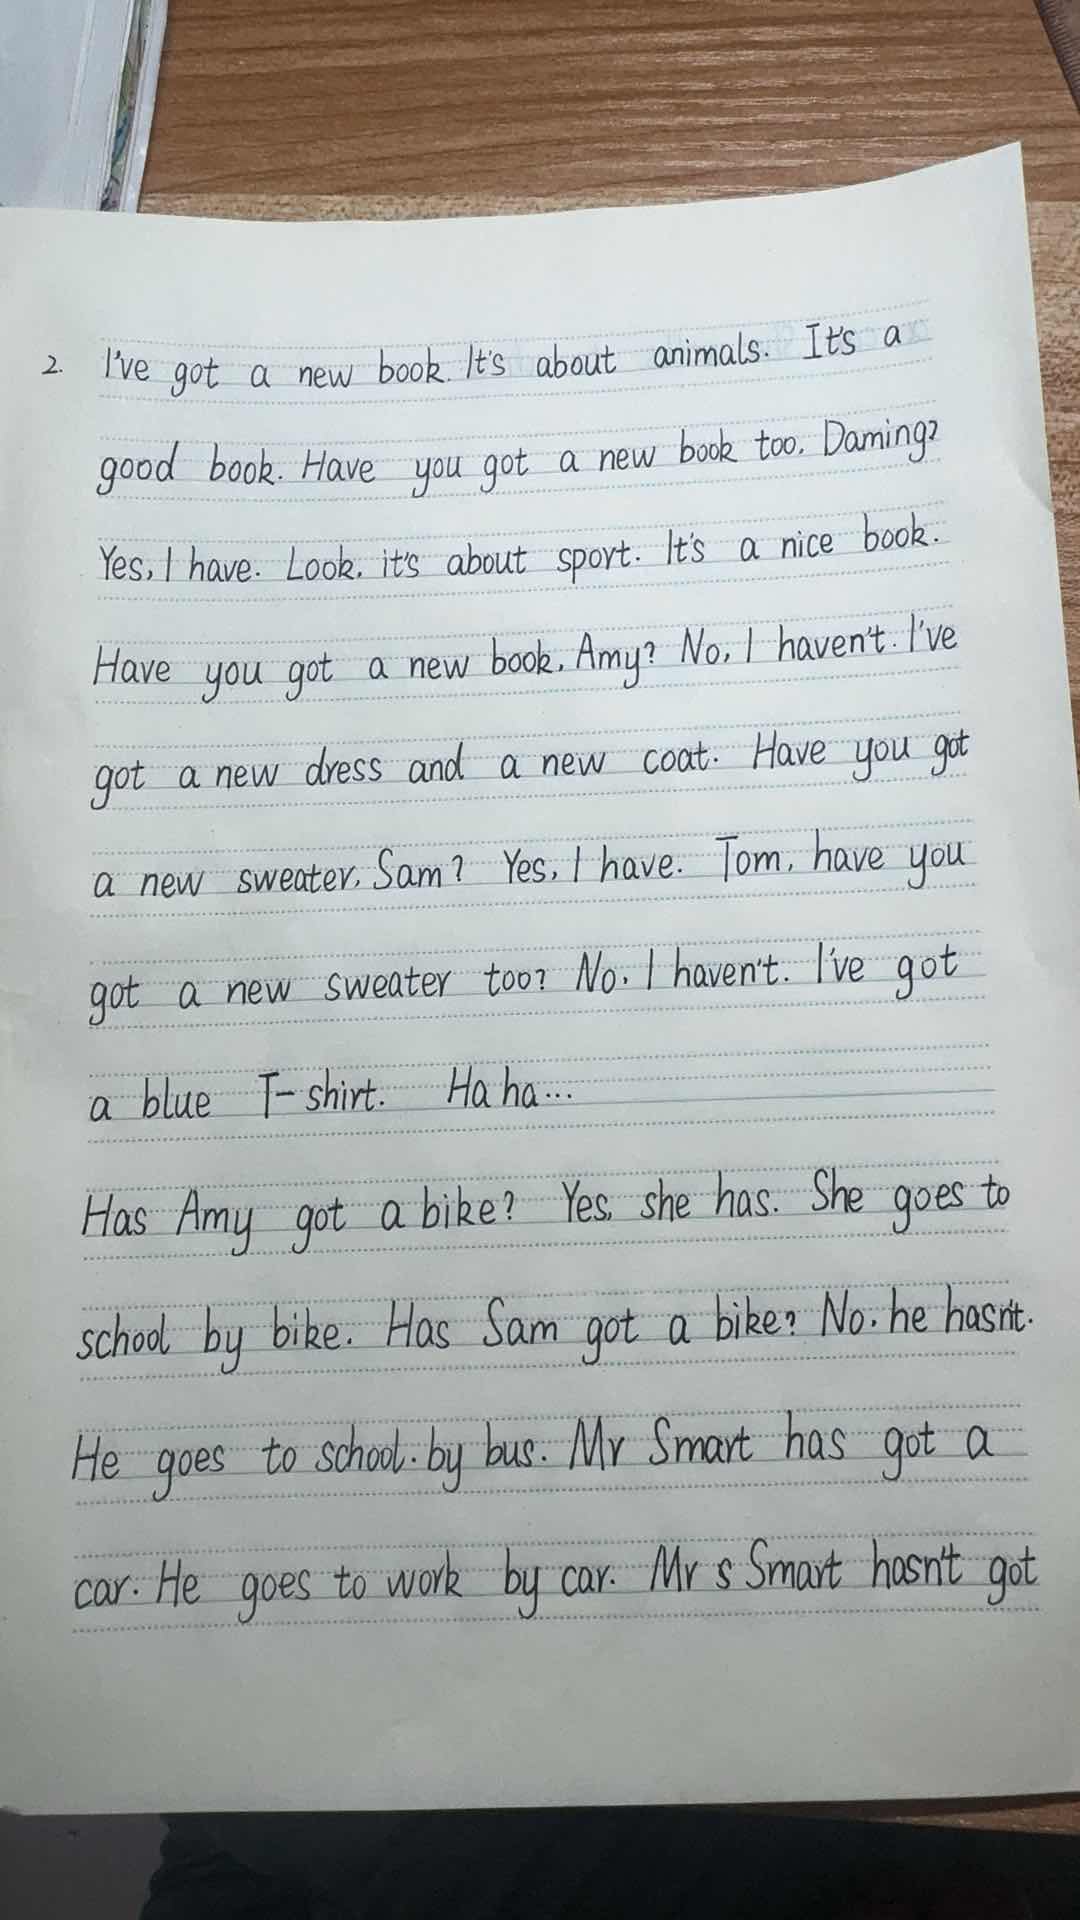 2. I've got a new book. It's about animals. It's a
good book. Have you got a new book too, Daming?
Yes, I have. Look, it's about sport. It's a nice book.
Have you got a new book, Amy? No, I haven't. I've
got a new dress and a new coat. Have you got
a new sweater, Sam? Yes, I have. Tom, have you
got a new sweater too? No, I haven't. I've got
a blue T-shirt. Ha ha...
Has Amy got a bike? Yes, she has. She goes to
school by bike. Has Sam got a bike? No, he hasn't.
He goes to school. by bus. Mr Smart has got a
car. He goes to work by car. Mr s Smart hasn't got